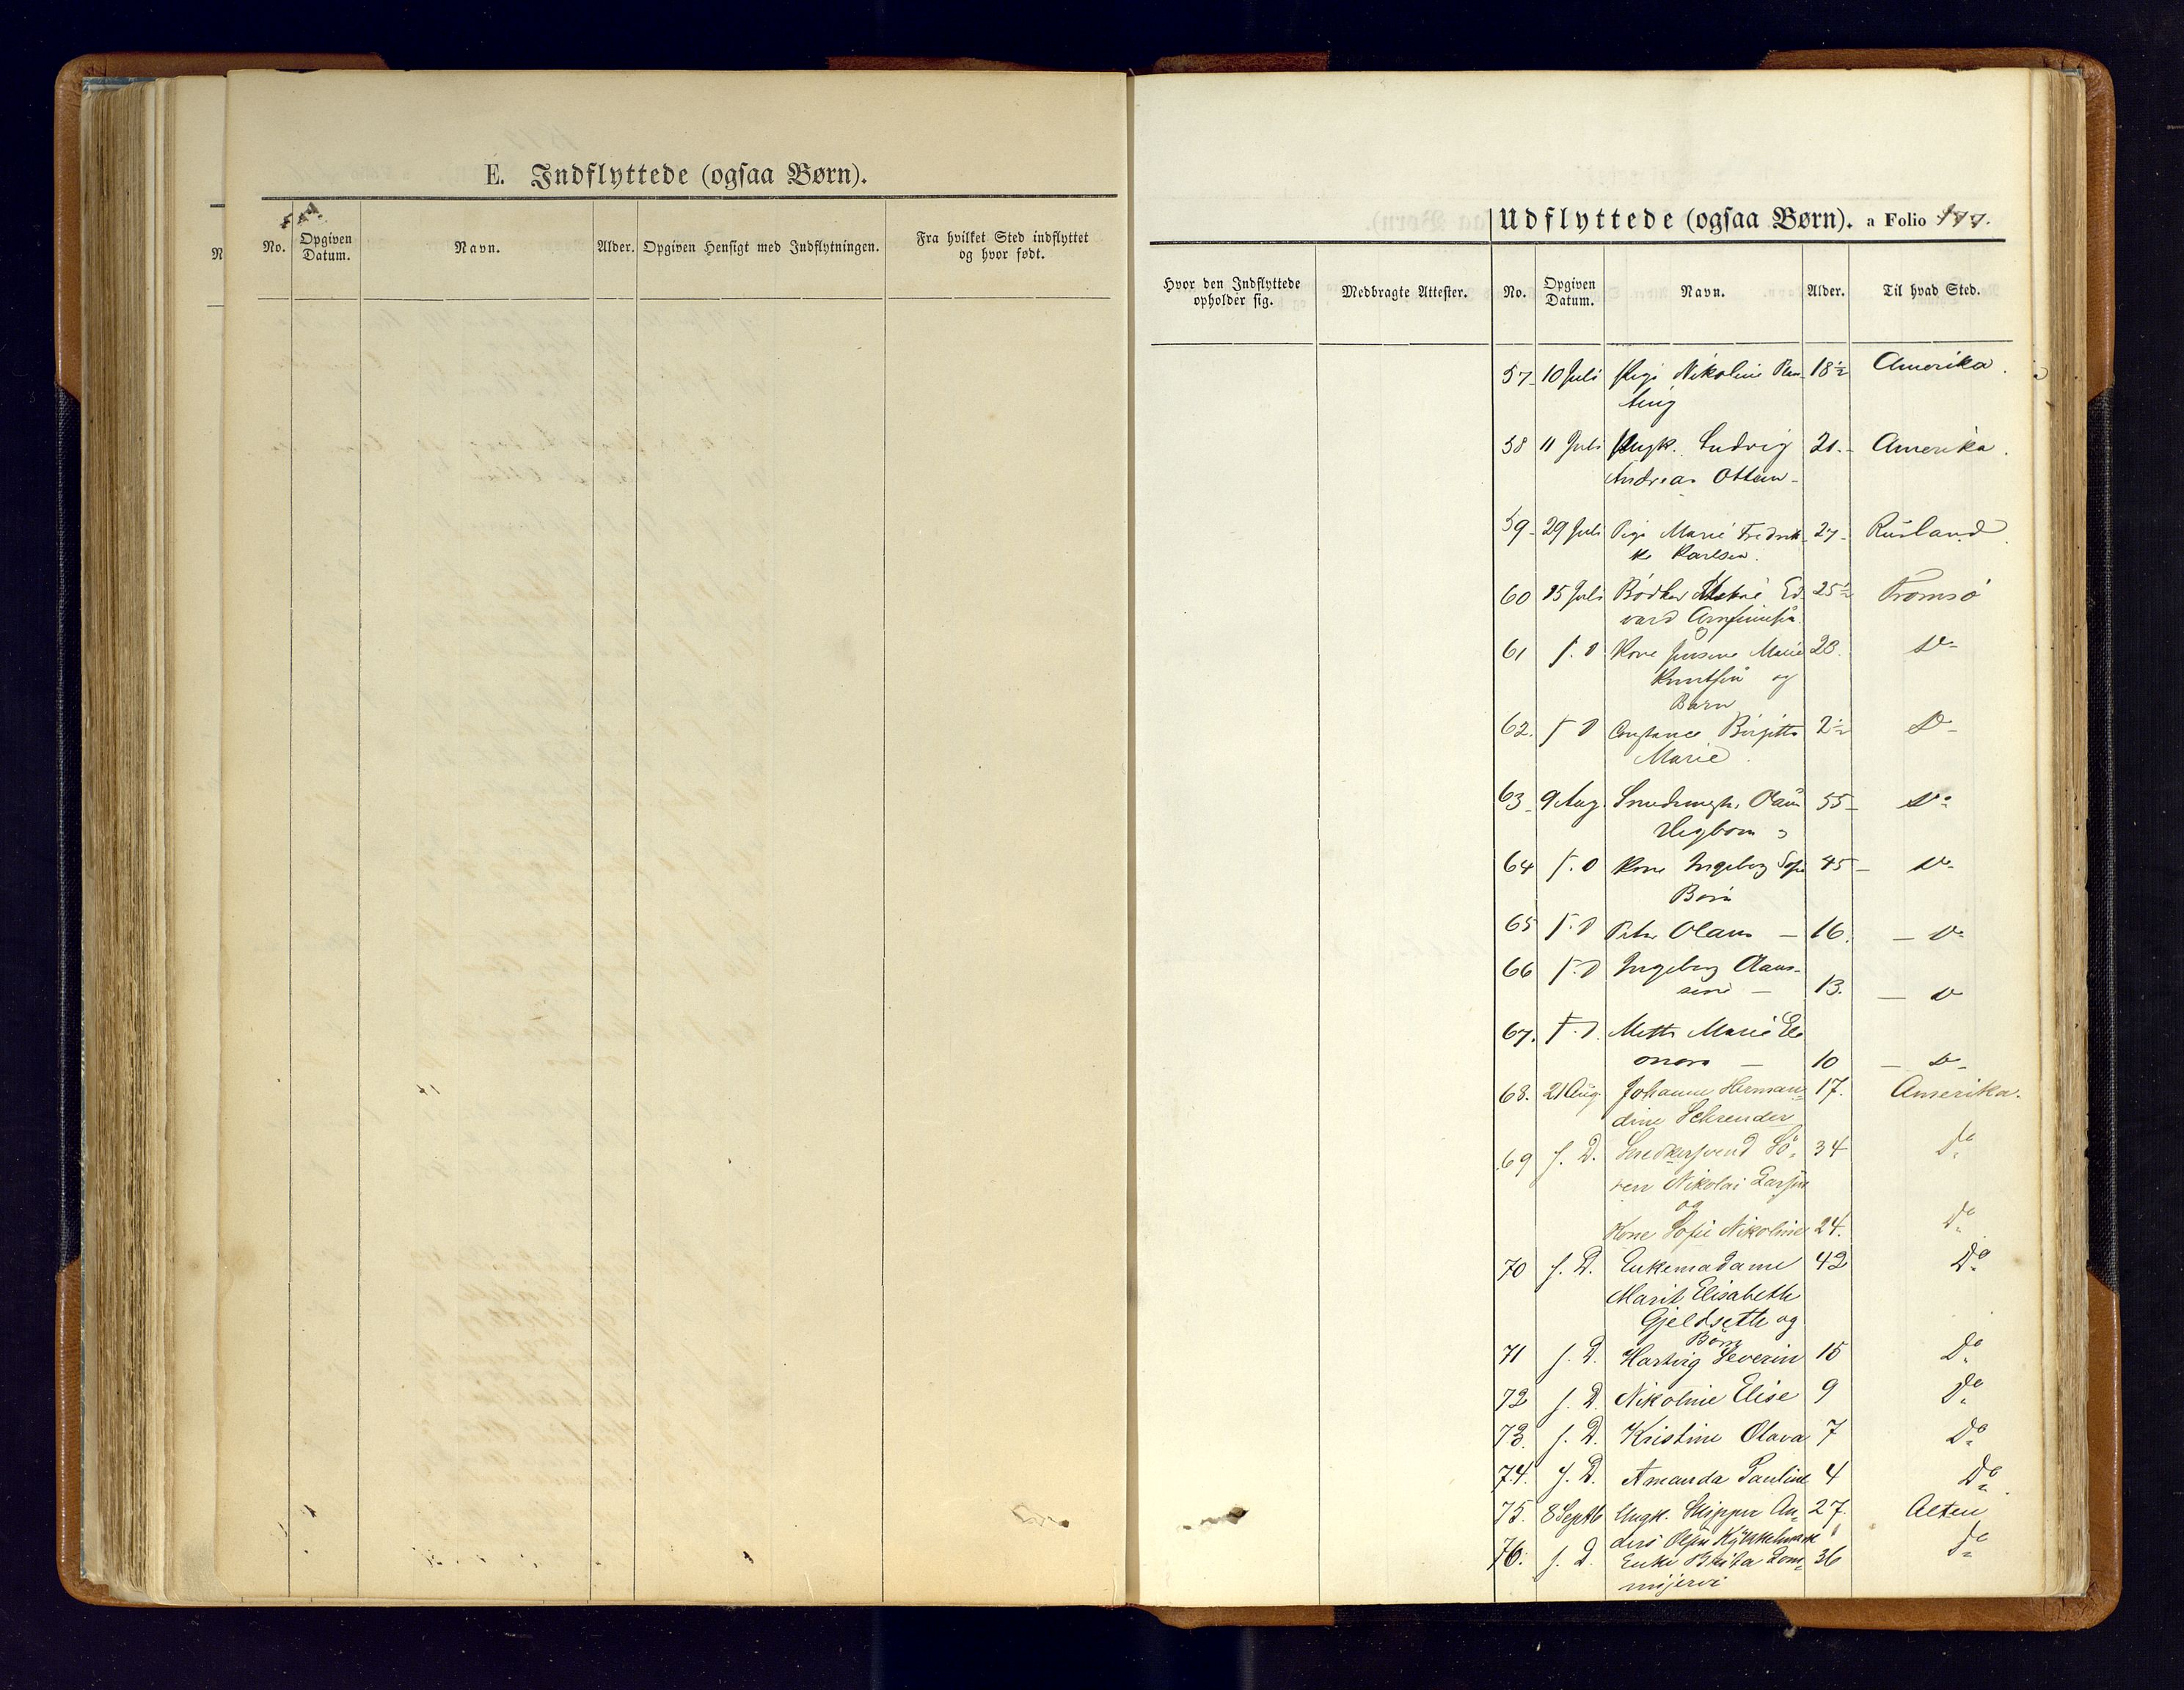 E. Indflyttede (ogsaa Børn).
No. Opgiven Datum. Navn. Alder. Opgiven Hensigt med Indflytningen. Fra hvilket Sted indflyttet og hvor født.
Udflyttede (ogsaa Børn). a Folio 177.
Hvor den Indflyttede opholder sig. Medbragte Attester. No. Opgiven Datum. Navn. Alder. Til hvad Sted.
57 10 Juli Pige Nikoline 18½ Amerika.
58 11 Juli Ungk. Ludvig 21. Amerika.
Andreas Ottem
59 29 Juli Pige Marie Fredrik- 27 Rusland
ke Karlsen.
60 25 Juli Bødker Ed- 25½ Tromsø
vard Arnfinnsen
61 f. D Kone Jensine Marie 28. Do
Knutsen og
Barn
62. f D Constance Birgitte 2½ Do
Marie
63 9 Aug. Smedmester Olaus 55 Do
64 f. D Kone Ingeborg Sofie 45 Do
Børn
65 f. D Peter Olaus 16. Do
66 f. D Ingeborg Olaus-
sine 13. Do
67. f. D. Mette Marie Ele
onora 10 Do
68. 21 Aug. Johanne Herman- 17. Amerika.
dine Schrender
69 f. D. Snedkersvend Sø- 34 Do
ren Nikolai Larsen
og
Kone Sofie Nikoline 24. Do
70 f. D. Enkemadame 42 Do
Marit Elisabeth
Gjeldseth og
Børn
71 f. D. Hartvig Severin 15 Do
72 f. D. Nikoline Elise 9 Do
73. f. D. Kristine Olava 7 Do
74. f. D. Amanda Pauline 4 Do
75. 8 Septb Ungk. Skipper An- 27. Alten
ders Olsen
76. f. D. Enke Brita Lom- 36 Do
mijervi